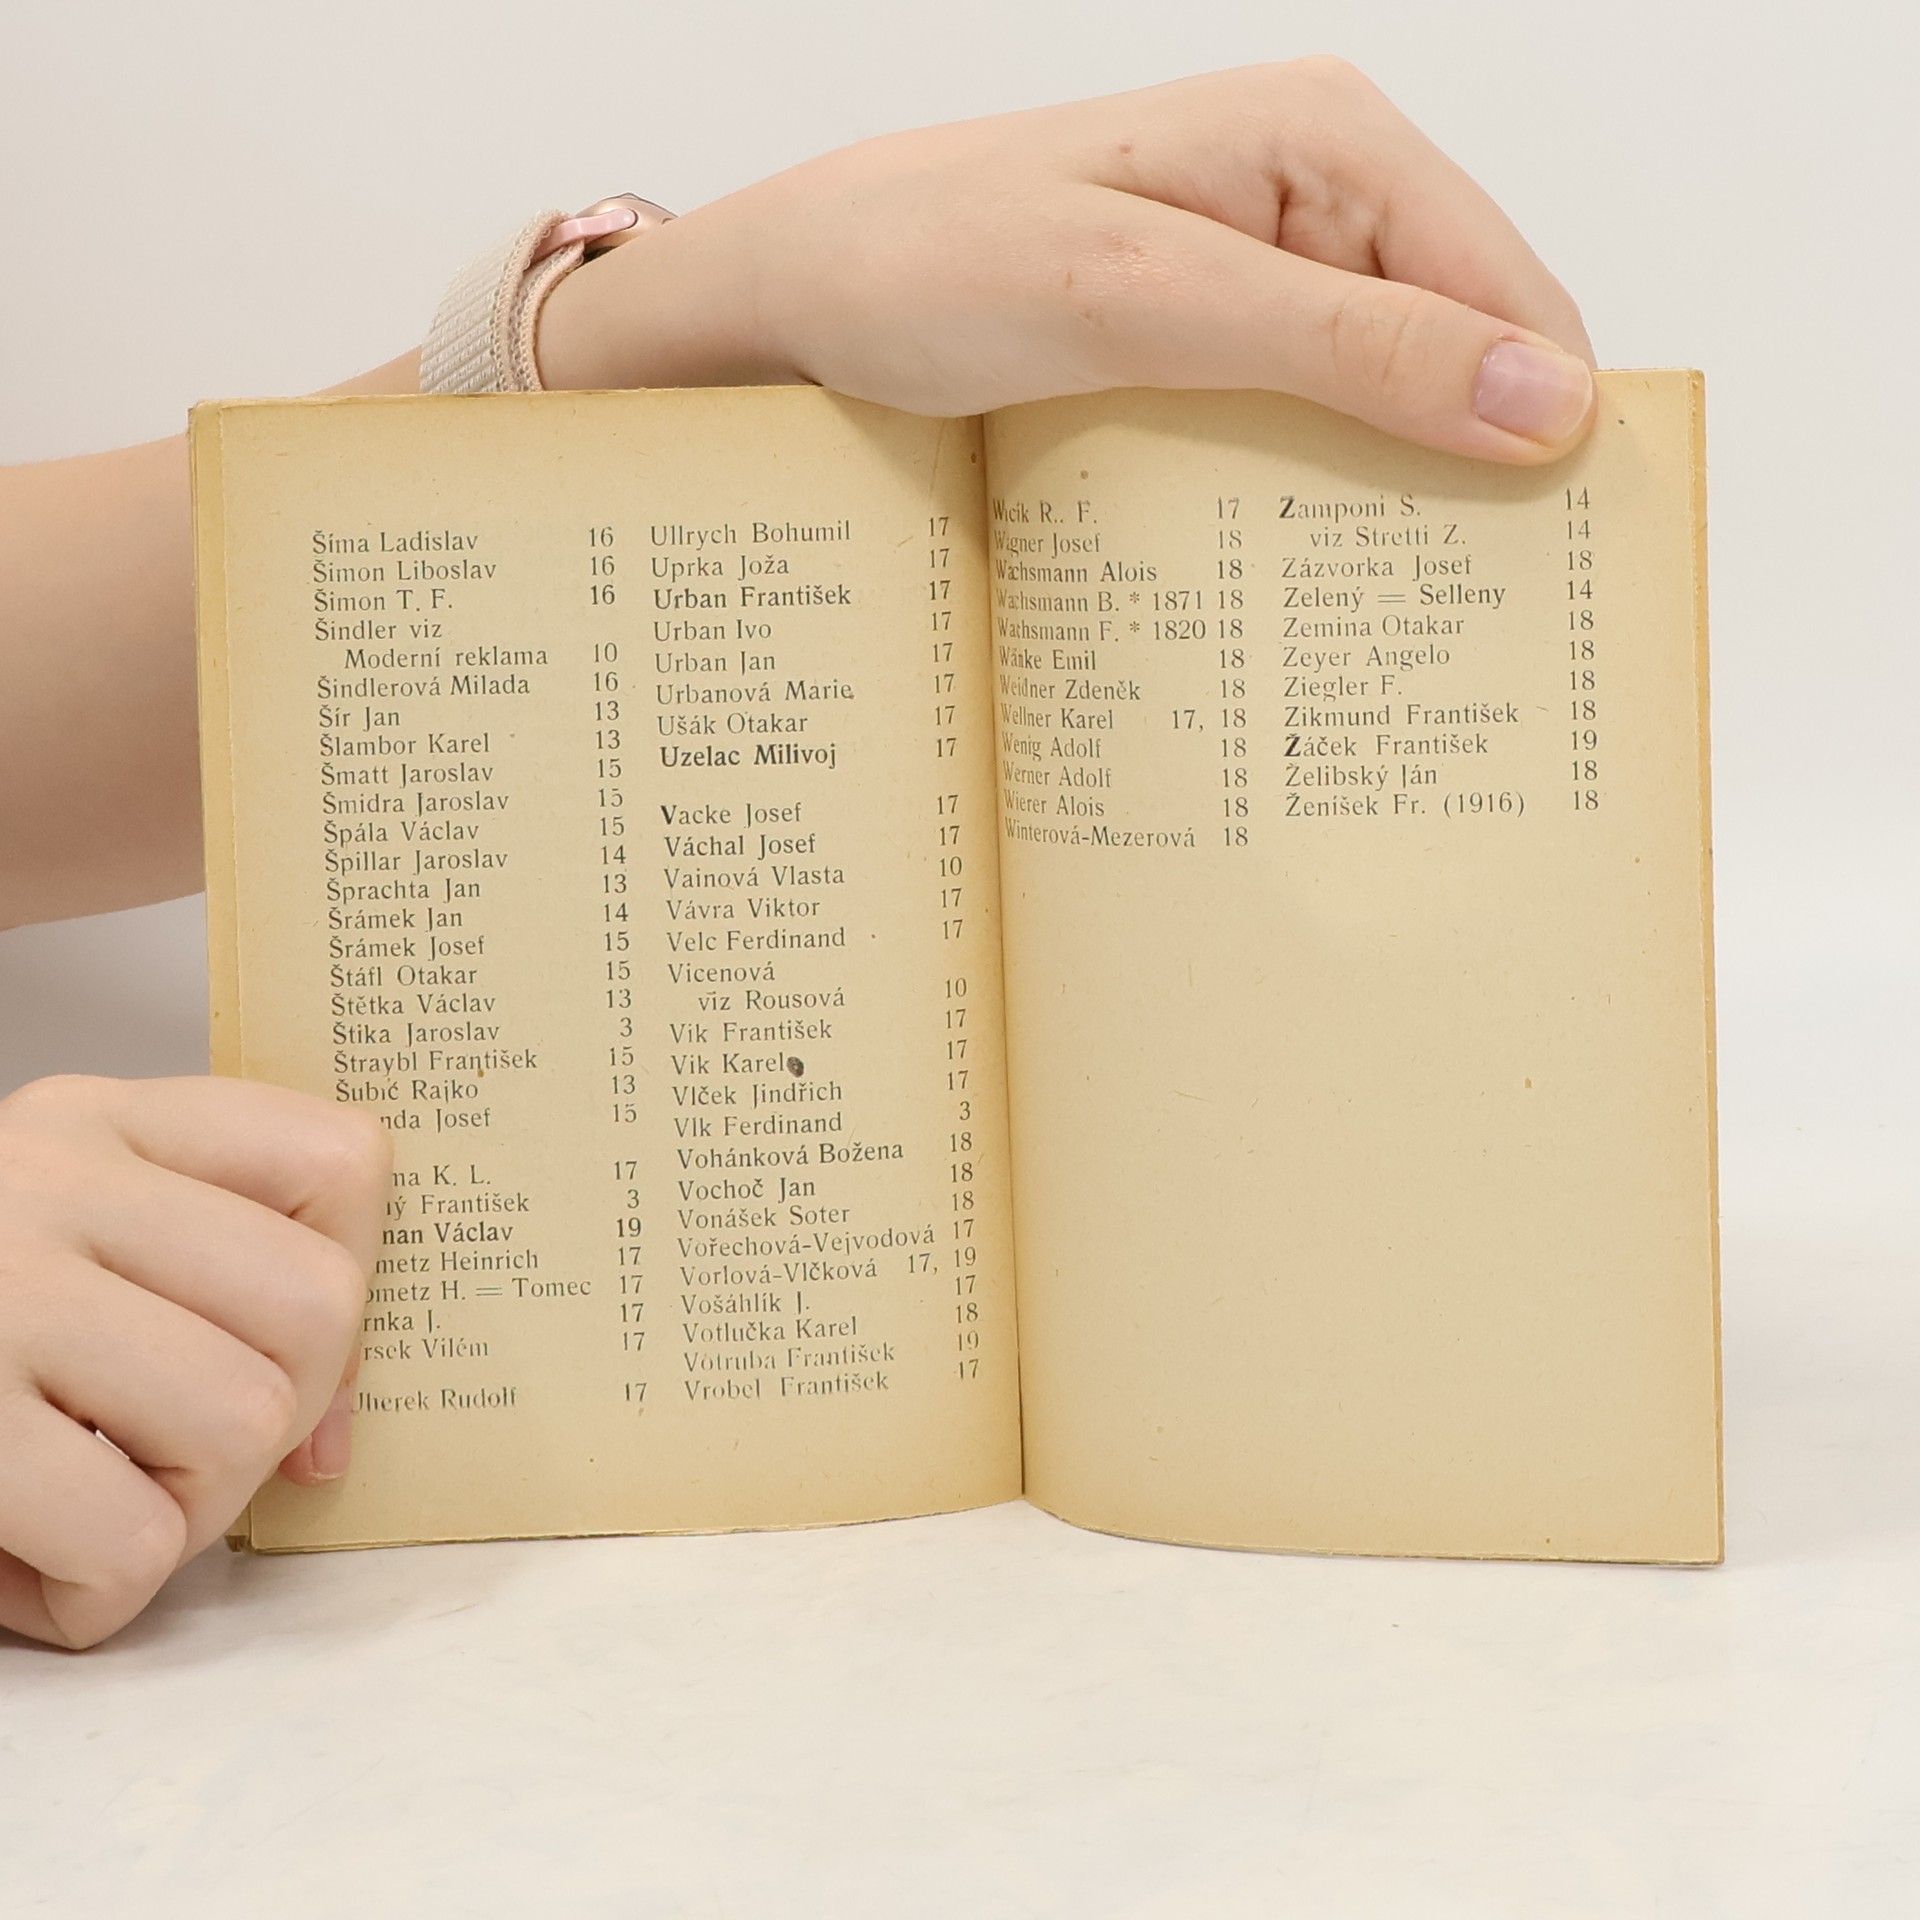 Šíma Ladislav 16
Šimon Liboslav 16
Šimon T. F. 16
Šindler viz
Moderní reklama 10
Šindlerová Milada 16
Šír Jan 13
Šlambor Karel 13
Šmatt Jaroslav 15
Šmidra Jaroslav 15
Špála Václav 15
Špillar Jaroslav 14
Šprachta Jan 13
Šrámek Jan 14
Šrámek Josef 15
Štáfl Otakar 15
Štětka Václav 13
Štika Jaroslav 3
Štraybl František 15
Šubić Rajko 13
Josef 15
K. L. 17
František 3
Václav 19
Heinrich 17
H. = Tomec 17
J. 17
Vilém 17
Uherek Rudolf 17
Ullrych Bohumil 17
Uprka Joža 17
Urban František 17
Urban Ivo 17
Urban Jan 17
Urbanová Marie 17
Ušák Otakar 17
Uzelac Milivoj 17
Vacke Josef 17
Váchal Josef 17
Vainová Vlasta 10
Vávra Viktor 17
Velc Ferdinand 17
Vicenová
viz Rousová 10
Vik František 17
Vik Karel 17
Vlček Jindřich 17
Vlk Ferdinand 3
Vohánková Božena 18
Vochoč Jan 18
Vonášek Soter 18
Vořechová-Vejvodová 17
Vorlová-Vlčková 17, 19
Vošáhlík J. 17
Votlučka Karel 18
Votruba František 19
Vrobel František 17
Wicík R. F. 17
Wagner Josef 18
Wachsmann Alois 18
Wachsmann B. * 1871 18
Wachsmann F. * 1820 18
Wänke Emil 18
Weidner Zdeněk 18
Wellner Karel 17, 18
Wenig Adolf 18
Werner Adolf 18
Wierer Alois 18
Winterová-Mezerová 18
Zamponi S. 14
viz Stretti Z. 14
Zázvorka Josef 18
Zelený = Selleny 14
Zemina Otakar 18
Zeyer Angelo 18
Ziegler F. 18
Zikmund František 18
Žáček František 19
Želibský Ján 18
Ženíšek Fr. (1916) 18